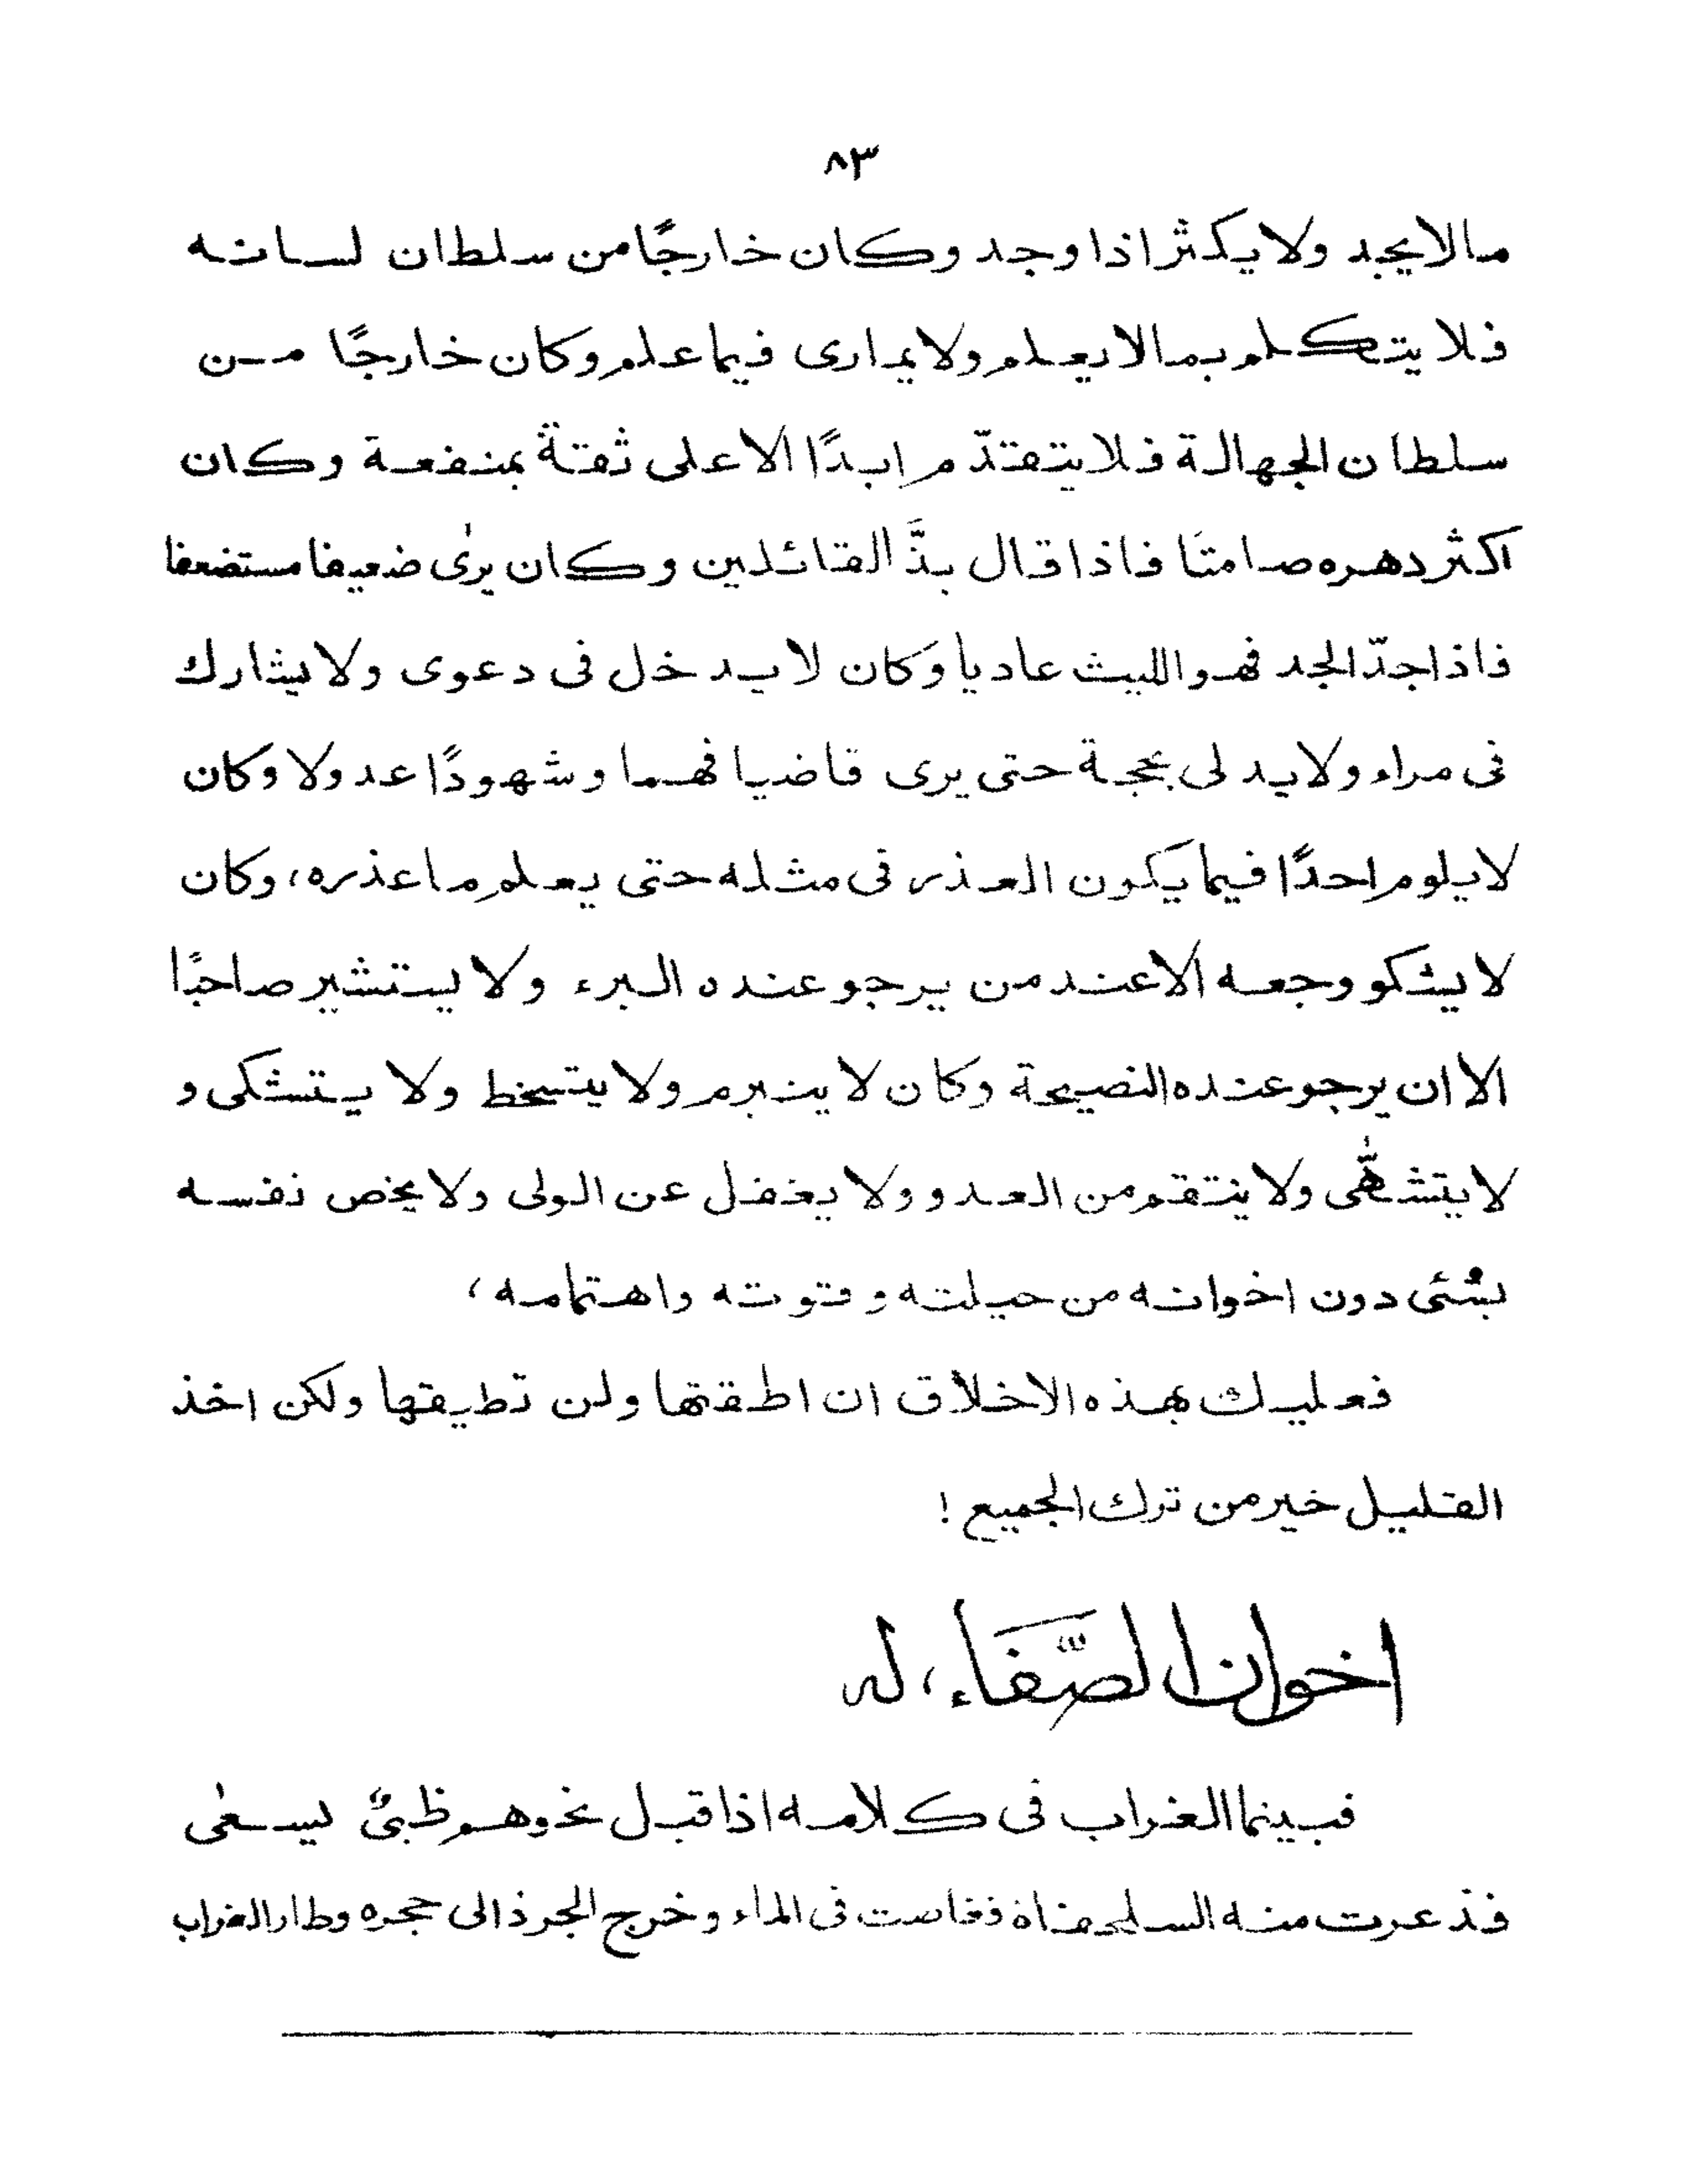 ٨٣
مالا يجد ولا يكثر اذا وجد وكان خارجًا من سلطان لسانه
فلا يتكلم بمالا يعلم ولا يمارى فيما علم وكان خارجًا من
سلطان الجهالة فلا يتقدّم ابدًا الا على ثقة بمنفعة وكان
اكثر دهره صامتًا فاذا قال بذَّ القائلين وكان يرىٰ ضعيفا مستضعفا
فاذا جدّ الجد فهو الليث عاديا وكان لا يدخل فى دعوى ولا يشارك
فى مراء ولا يدلى بحجة حتى يرى قاضيا فهما وشهودًا عدولا وكان
لا يلوم احدًا فيما يكون العذر فى مثله حتى يعلم ما عذره، وكان
لا يشكو وجعه الا عند من يرجو عنده البرء ولا يستشير صاحبًا
الا ان يرجو عنده النصيحة وكان لا ينبرم ولا يتسخط ولا يتشكى و
لا يتشهّٰى ولا ينتقم من العدو ولا يغفل عن الولى ولا يخص نفسه
بشئى دون اخوانه من حيلته وقوته واهتمامه،
فعليك بهذه الاخلاق ان اطقتها ولن تطيقها ولكن اخذ
القليل خير من ترك الجميع!
اخوان الصَّفَاء، له
فبينما الغراب فى كلامه اذا قبل نحوهم ظبىٌ يسعٰى
فذعرت منه السلحفاة فغاصت فى الماء وخرج الجرذ الى حجره وطار الغراب